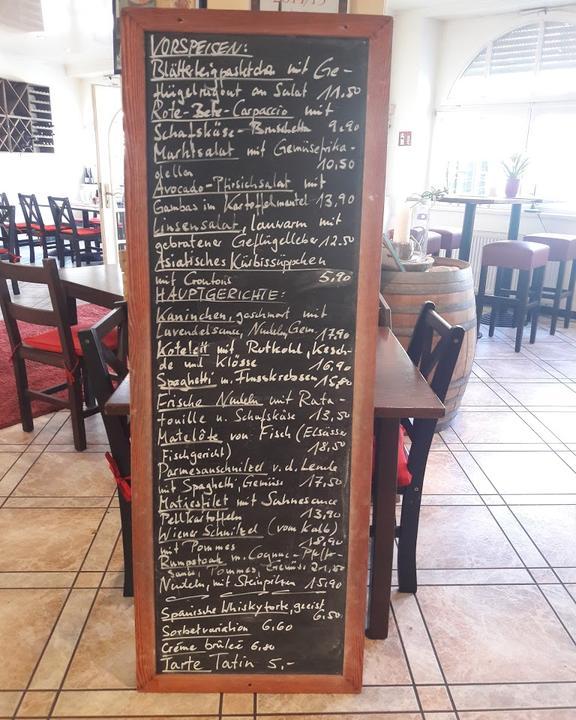 VORSPEISEN:
Blätterteigpastetchen mit Ge-
flügelragout an Salat 11,50
Rote-Bete-Carpaccio mit
Schafskäse-Bruschetta 9,90
Marktsalat mit Gemüsefrika-
dellen 10,50
Avocado-Pfirsichsalat mit
Gambas im Kartoffelmantel 13,90
Linsensalat, lauwarm mit
gebratener Geflügelleber 12.50
Asiatisches Kürbissüppchen
mit Croutons 5,90
HAUPTGERICHTE:
Kaninchen, geschmort mit
Lavendelsauce, Nudeln, Gem. 17,90
Kotelett mit Rotkohl, Kasch-
de und Klösse 16,90
Spaghetti m. Flusskrebsen 15,80
Frische Nudeln mit Rata-
touille u. Schafskäse 13,50
Matelote von Fisch (Elsässer
Fischgericht) 18,50
Parmesanschnitzel v. d. Lende
mit Spaghetti, Gemüse 17,50
Matjesfilet mit Sahnesauce
Pellkartoffeln 13,90
Wiener Schnitzel (vom Kalb)
mit Pommes 18,90
Rumpsteak m. Cognac-Pfeffer-
Sauce, Pommes, Gemüse 21,50
Nudeln, mit Steinpilzen 15,90
Spanische Whiskytorte, geeist
6,50
Sorbetvariation 6,60
Crème brûlée 6,80
Tarte Tatin 5,-